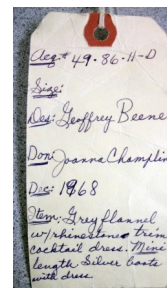 Acq# 49-86-11-D
Size:
Des: Geoffrey Beene
Don: Joanna Champlin
Dec: 1968
Item: Grey flannel
w/rhinestone trim
cocktail dress. Mini
length. Silver boots
with dress